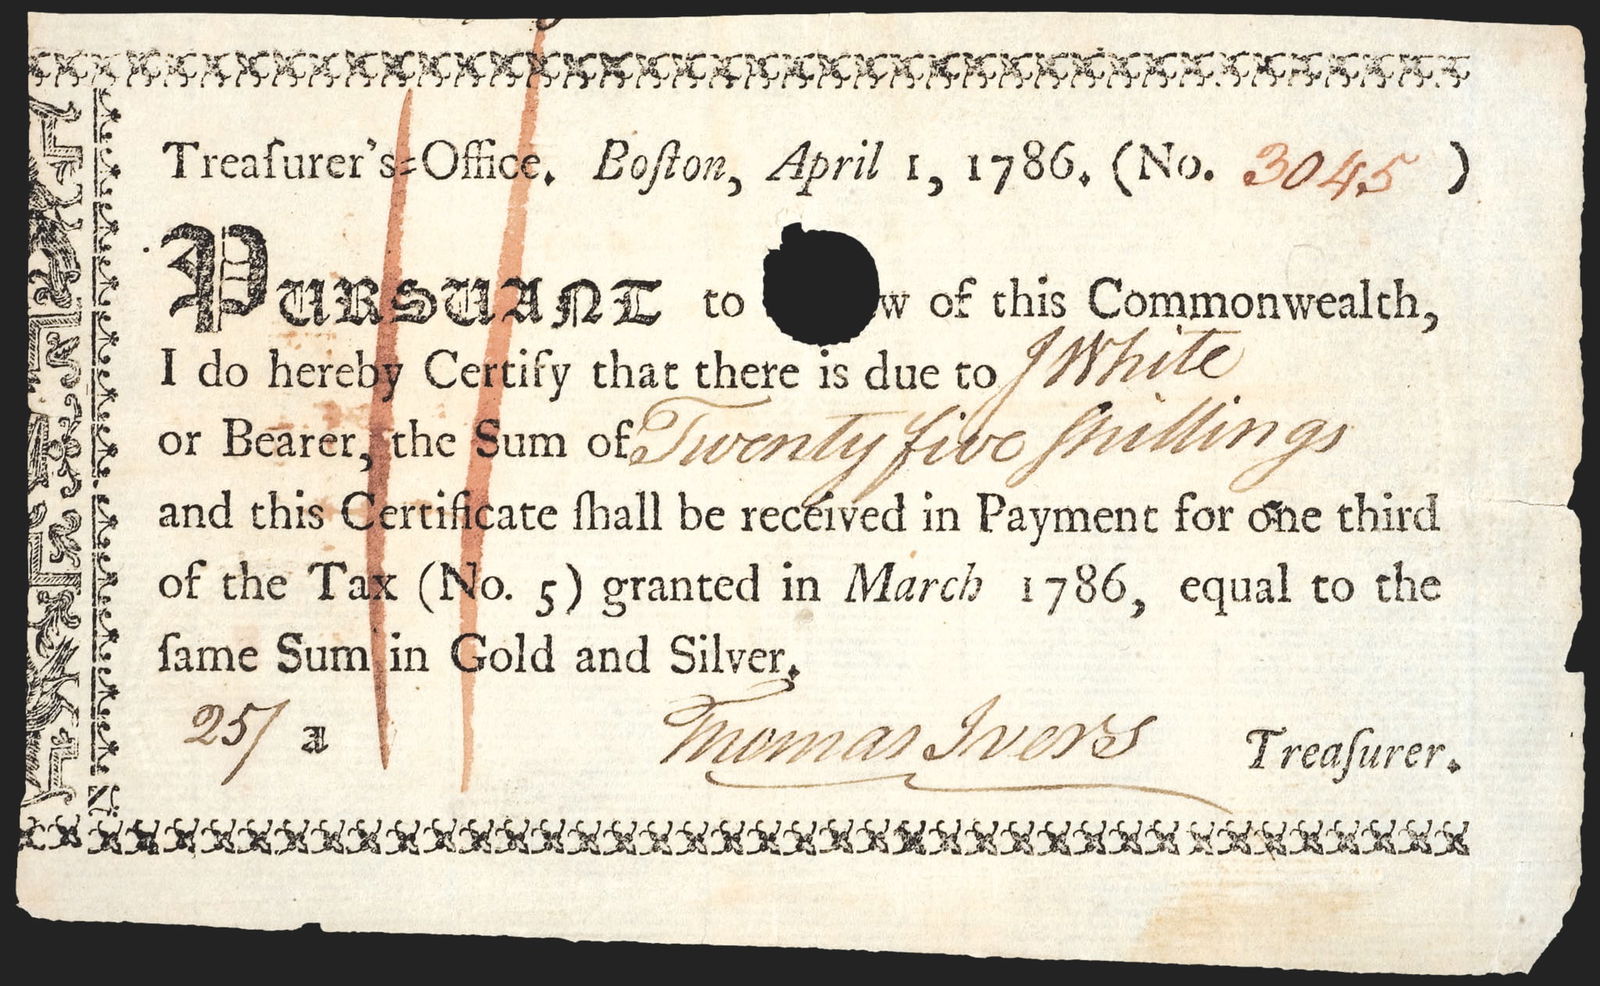 Treaſurer's=Office. Boſton, April 1, 1786. (No. 3045 )
PURSUANT to w of this Commonwealth,
I do hereby Certify that there is due to J White
or Bearer, the Sum of Twenty five ſhillings
and this Certificate ſhall be received in Payment for one third
of the Tax (No. 5) granted in March 1786, equal to the
ſame Sum in Gold and Silver.
25/ a Thomas Ivers Treaſurer.